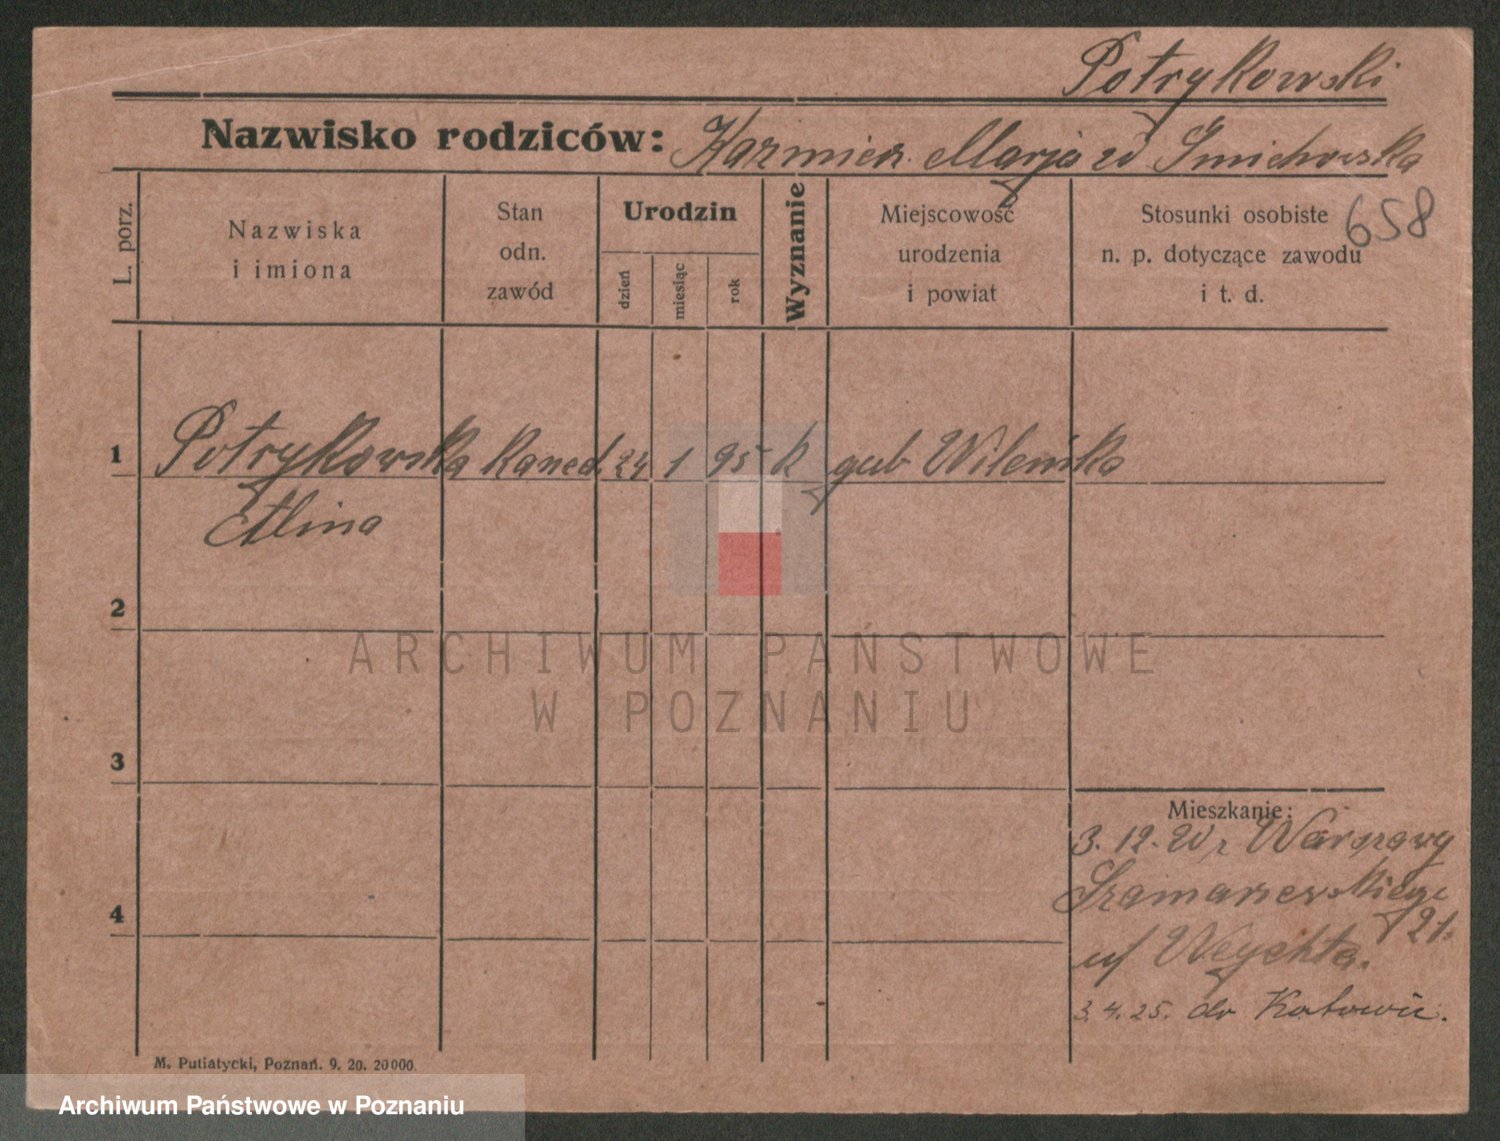 Potrykowski
Nazwisko rodziców: Kazmierz Marja zd Smichowska
658
L. porz.
Nazwiska
i imiona
Stan
odn.
zawód
Urodzin
dzień
miesiąc
rok
Wyznanie
Miejscowość
urodzenia
i powiat
Stosunki osobiste
n. p. dotyczące zawodu
i t. d.
1 Potrykowska kaned. 24 1 95 k gub Wilenska
Alina
2
ARCHIWUM PAŃSTWOWE
W POZNANIU
3
Mieszkanie:
3.12.20 z Warszawy
4
21.
u/ Weychta.
3.4.25. do Katowic.
M. Putiatycki, Poznań. 9. 20. 20000.
Archiwum Państwowe w Poznaniu